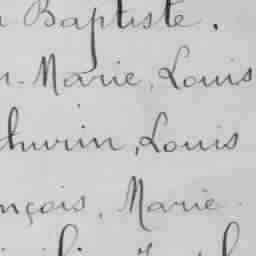 Baptiste.
Marie, Louis
thurin, Louis
nçois, Marie